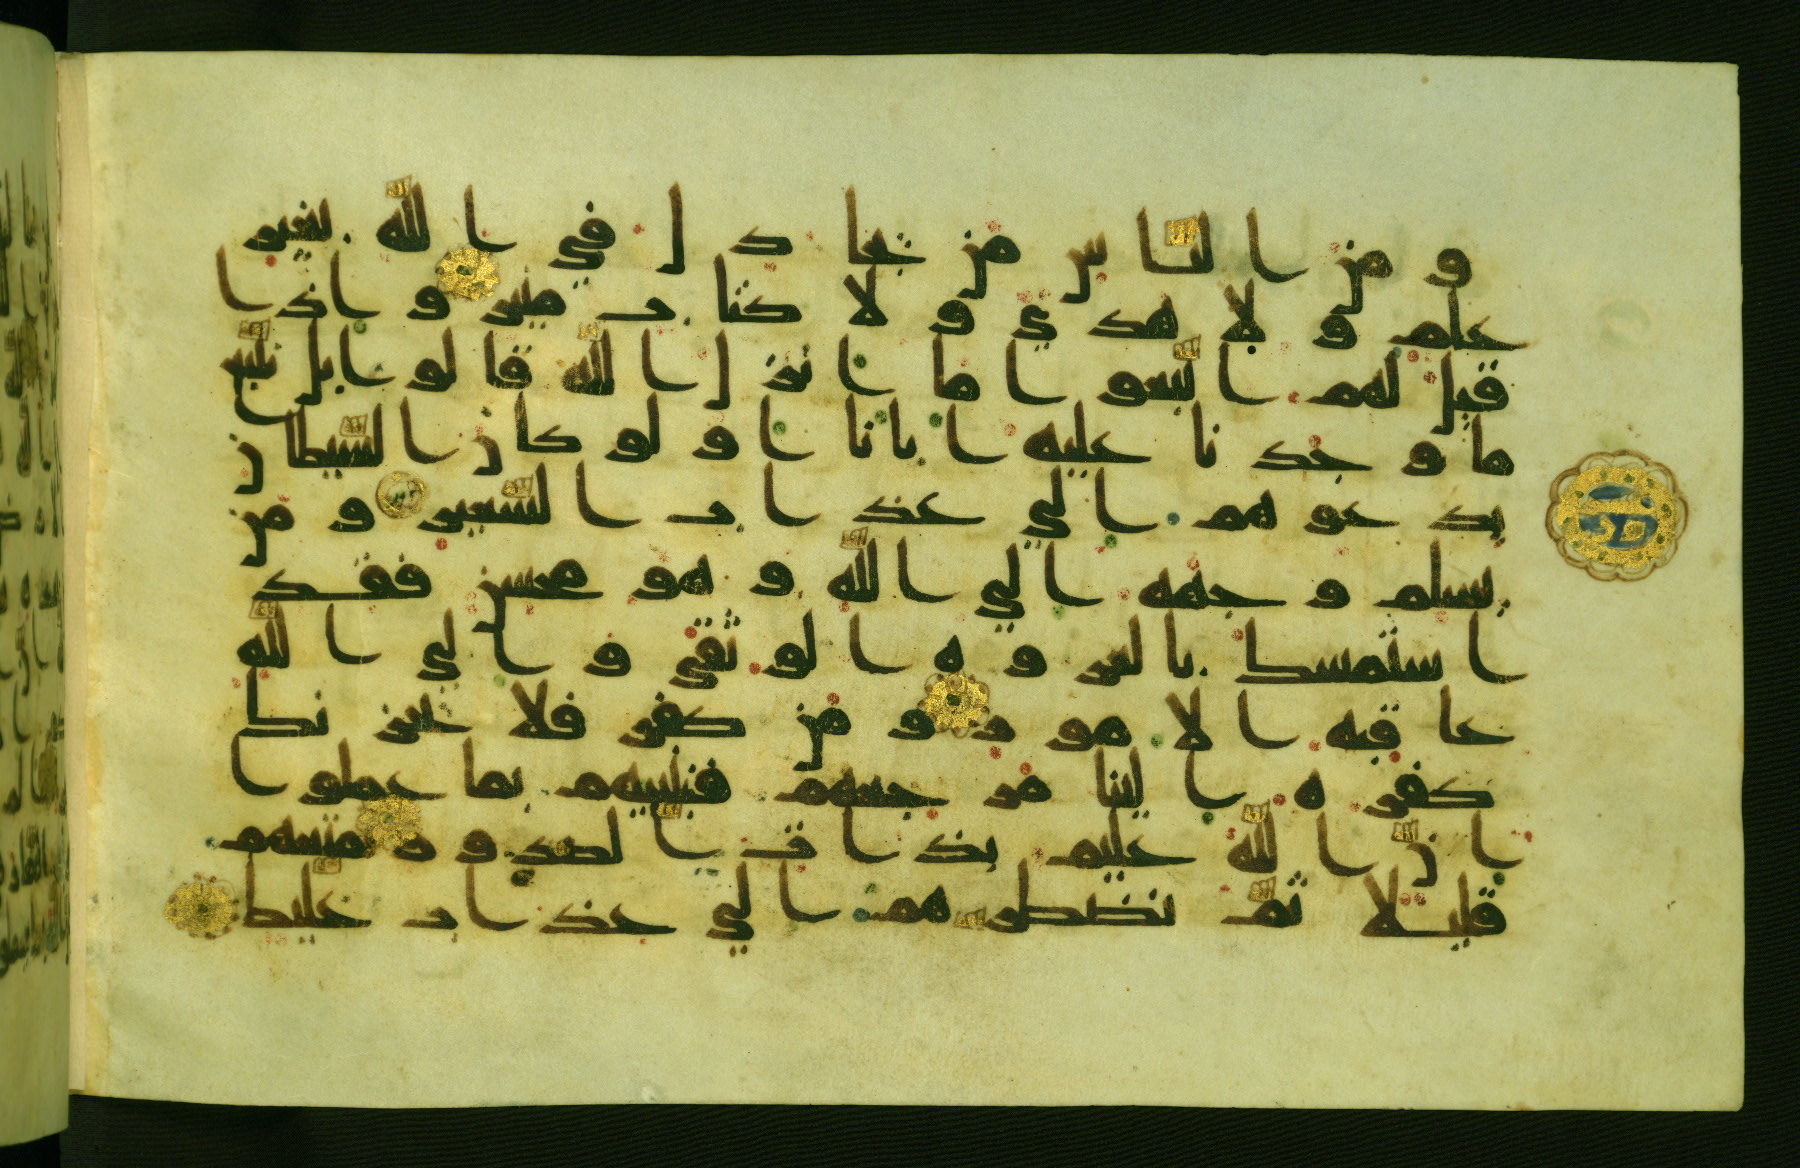 ومن الناس من يجادل في الله بغير
علم ولا هدى ولا كتاب منير وإذا
قيل لهم اتبعوا ما أنزل الله قالوا بل نتبع
ما وجدنا عليه آبانا أولو كان الشيطان
يدعوهم إلى عذاب السعير ومن
يسلم وجهه إلى الله وهو محسن فقد
استمسك بالعروة الوثقى وإلى الله
عاقبة الأمور ومن كفر فلا يحزنك
كفره إلينا مرجعهم فننبئهم بما عملوا
إن الله عليم بذات الصدور نمتعهم
قليلا ثم نضطرهم إلى عذاب غليظ